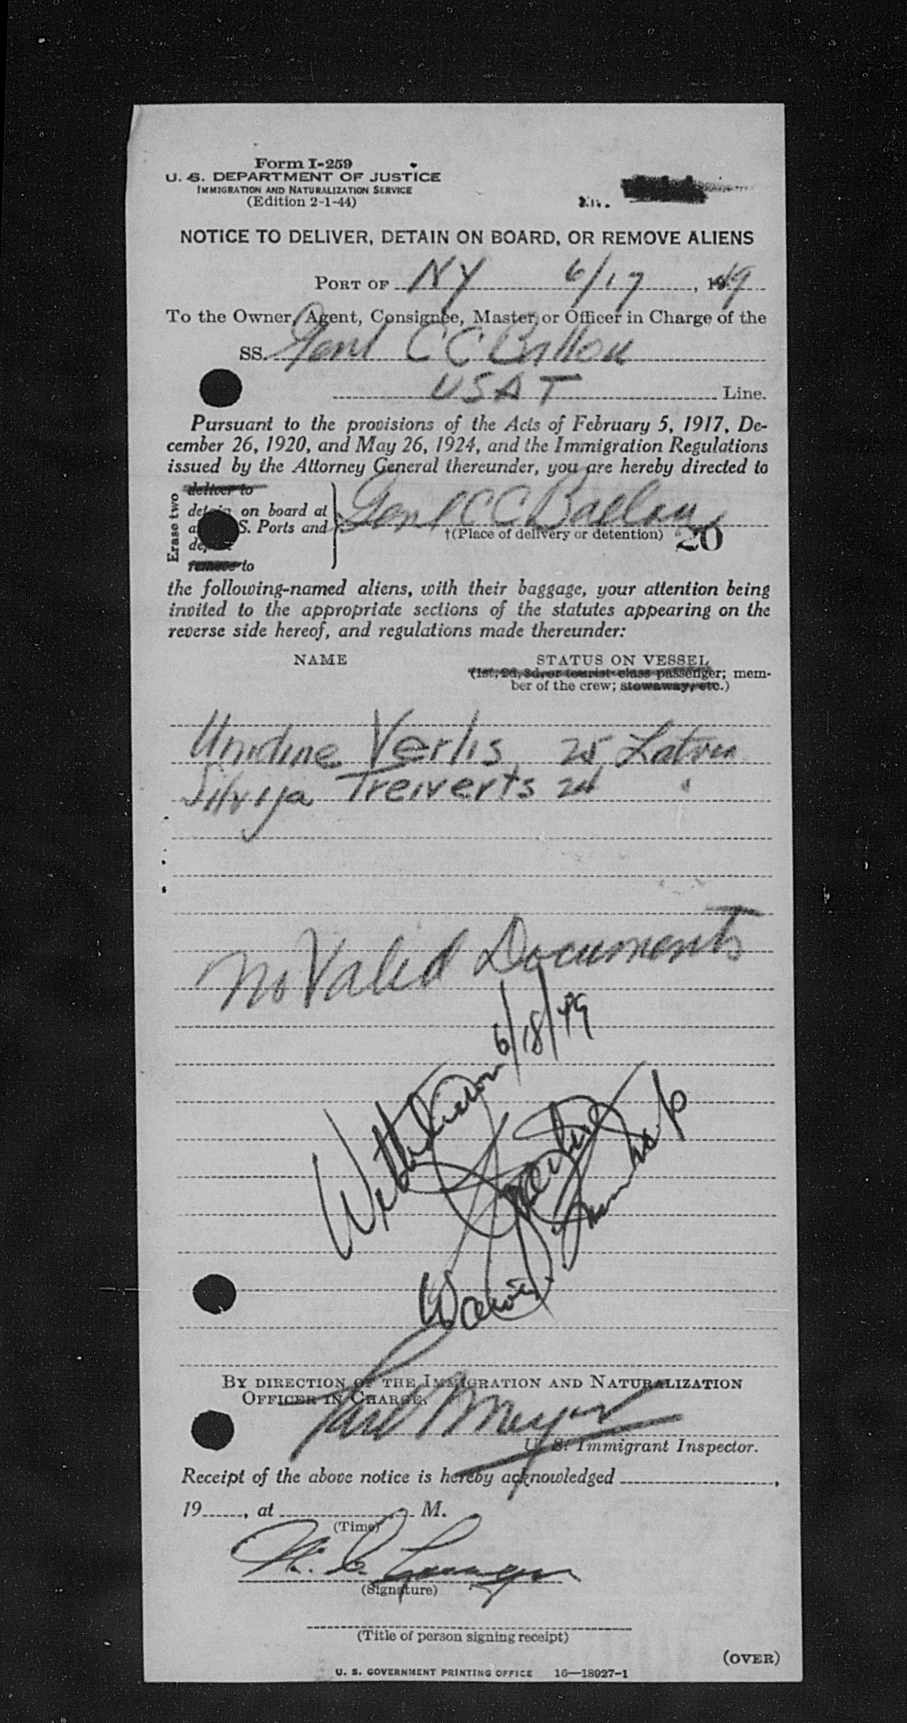 Form I-259
U. S. DEPARTMENT OF JUSTICE
IMMIGRATION AND NATURALIZATION SERVICE
(Edition 2-1-44)
NOTICE TO DELIVER, DETAIN ON BOARD, OR REMOVE ALIENS
PORT OF NY 6/17, 1949
To the Owner, Agent, Consignee, Master, or Officer in Charge of the
SS. Genl C C Ballou
USAT Line.
Pursuant to the provisions of the Acts of February 5, 1917, De-
cember 26, 1920, and May 26, 1924, and the Immigration Regulations
issued by the Attorney General thereunder, you are hereby directed to
Erase two
deliver to
on board at
S. Ports and
remove to
Genl C C Ballou
†(Place of delivery or detention) 20
the following-named aliens, with their baggage, your attention being
invited to the appropriate sections of the statutes appearing on the
reverse side hereof, and regulations made thereunder:
NAME STATUS ON VESSEL
(1st, 2d, 3d, or tourist class passenger; mem-
ber of the crew; stowaway, etc.)
Undine Verlis 25 Latvia
Silvija Treiverts 24 "
No Valid Documents
6/18/49
Withdrawn
BY DIRECTION OF THE IMMIGRATION AND NATURALIZATION
OFFICER IN CHARGE.
Meyer
U. S. Immigrant Inspector.
Receipt of the above notice is hereby acknowledged ,
19 , at M.
(Time)
(Signature)
(Title of person signing receipt)
(OVER)
U. S. GOVERNMENT PRINTING OFFICE 16—18027-1